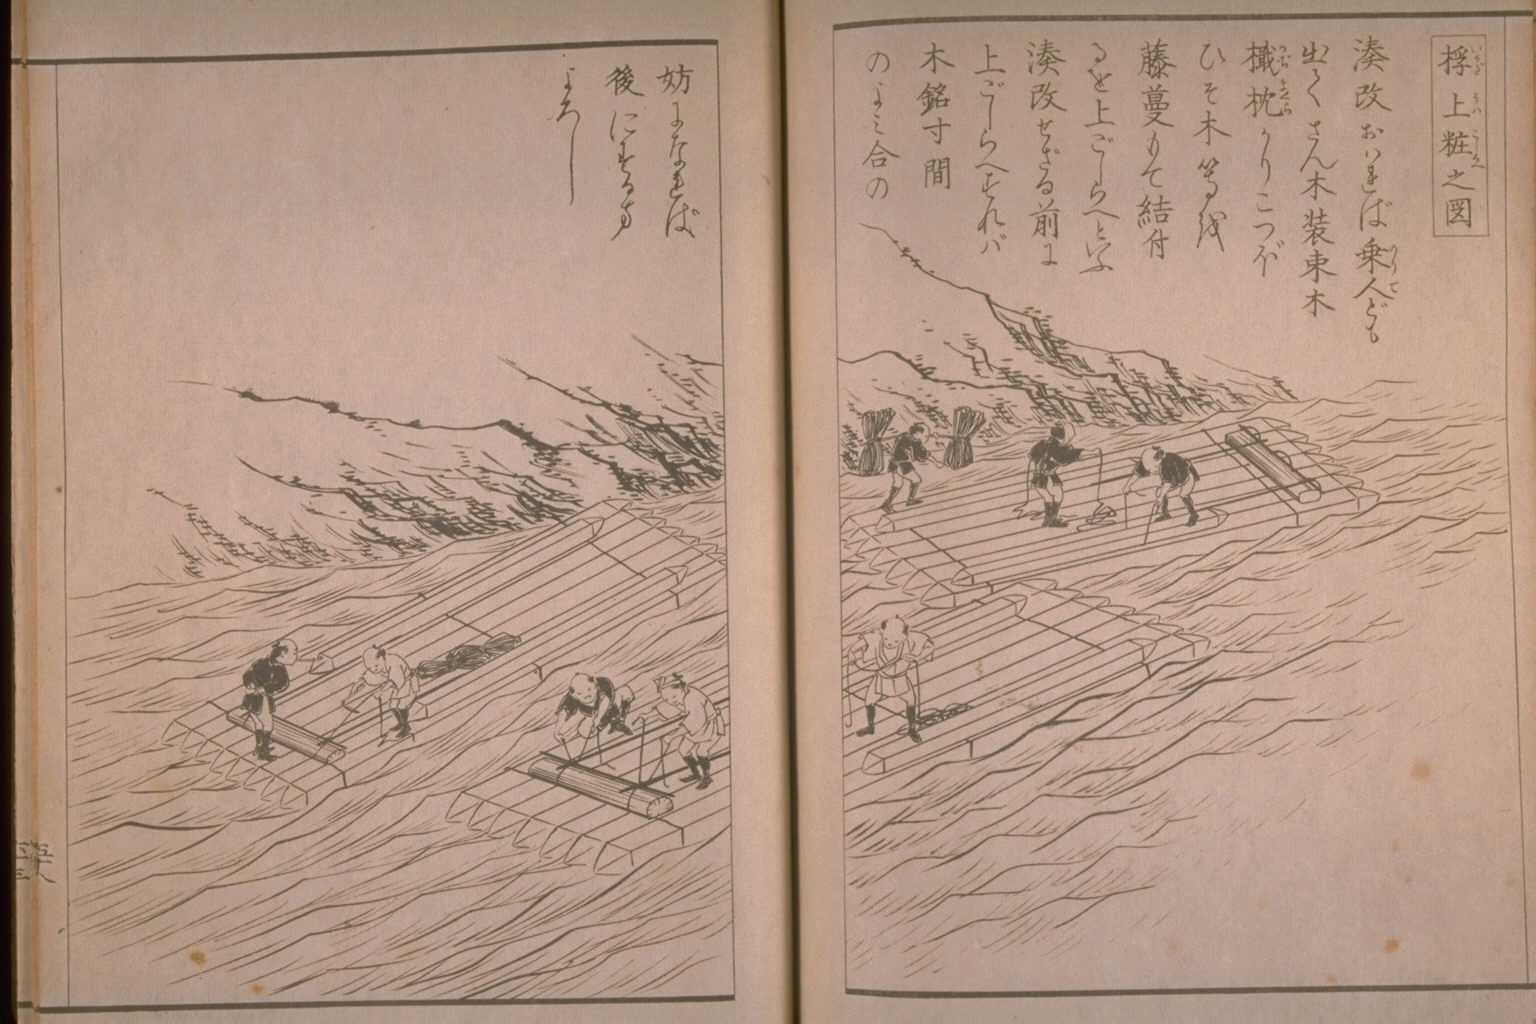 桴上粧之図
湊改おはれば乗人ども
出てさん木装束木
檝枕かりこつぼ
ひそ木等を
藤蔓もて結付
るを上ごしらへといふ
湊改せざる前に
上ごしらへすれバ
木銘寸間
のよミ合の
妨になれば
後にするす
よろし